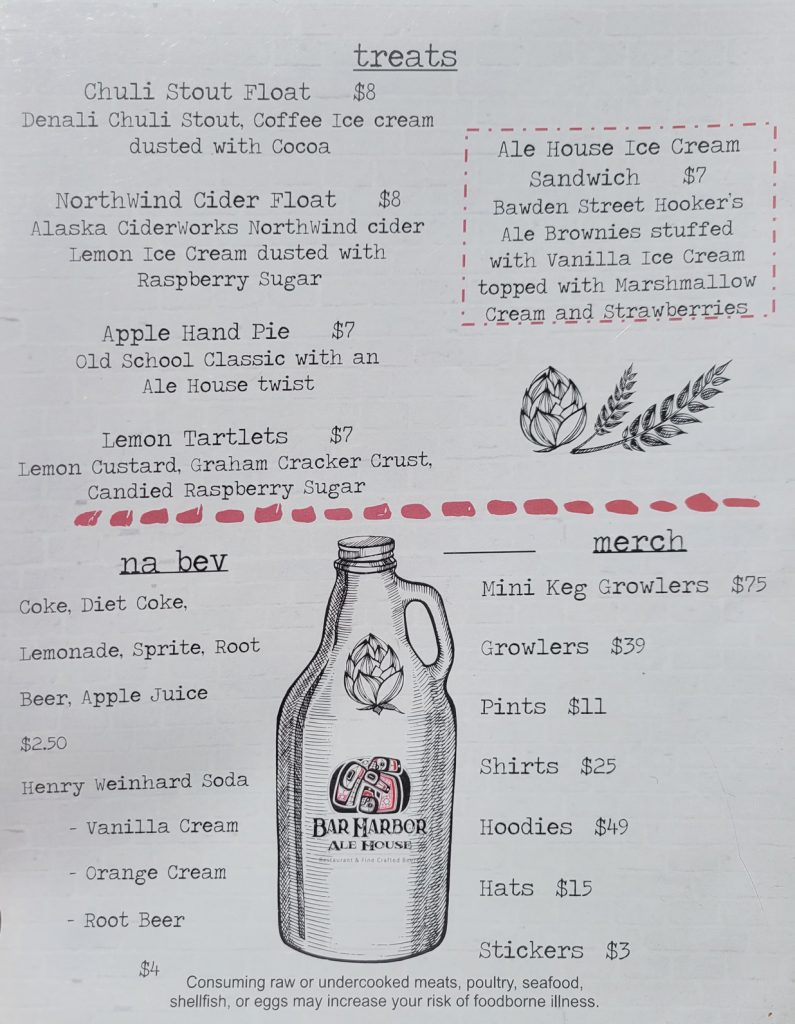 treats
Chuli Stout Float $8
Denali Chuli Stout, Coffee Ice cream
dusted with Cocoa
NorthWind Cider Float $8
Alaska CiderWorks NorthWind cider
Lemon Ice Cream dusted with
Raspberry Sugar
Apple Hand Pie $7
Old School Classic with an
Ale House twist
Lemon Tartlets $7
Lemon Custard, Graham Cracker Crust,
Candied Raspberry Sugar
Ale House Ice Cream
Sandwich $7
Bawden Street Hooker's
Ale Brownies stuffed
with Vanilla Ice Cream
topped with Marshmallow
Cream and Strawberries
na bev
Coke, Diet Coke,
Lemonade, Sprite, Root
Beer, Apple Juice
$2.50
Henry Weinhard Soda
- Vanilla Cream
- Orange Cream
- Root Beer
$4
BAR HARBOR
ALE HOUSE
Restaurant & Find Crafted
merch
Mini Keg Growlers $75
Growlers $39
Pints $11
Shirts $25
Hoodies $49
Hats $15
Stickers $3
Consuming raw or undercooked meats, poultry, seafood,
shellfish, or eggs may increase your risk of foodborne illness.